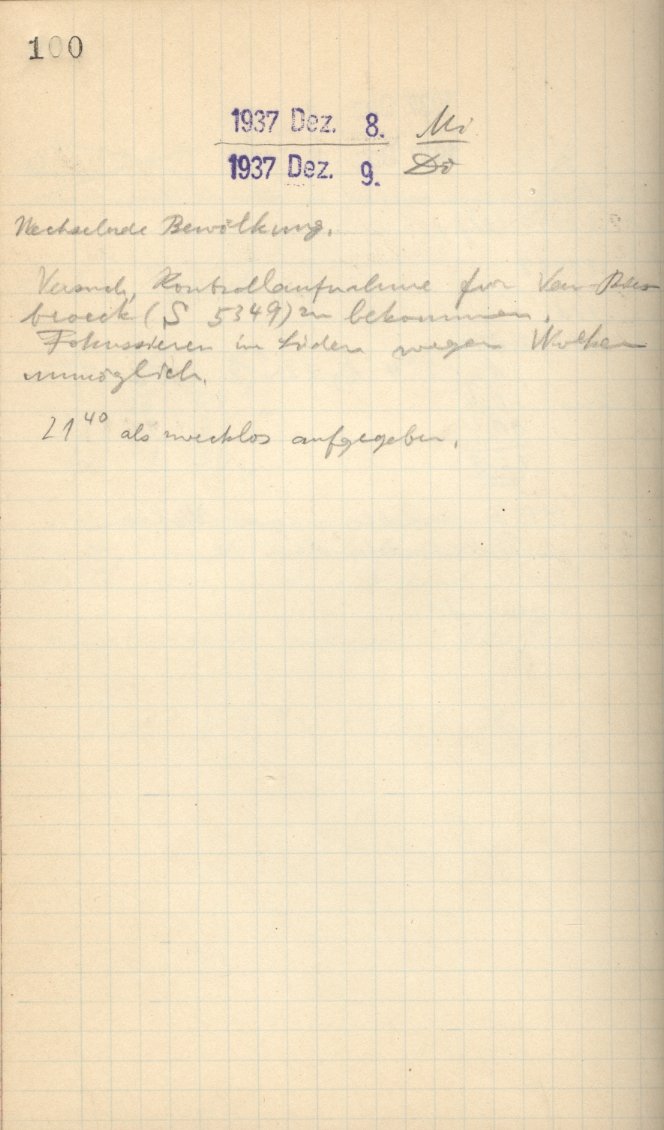 100
1937 Dez. 8. Mi
1937 Dez. 9. Do
Wechselnde Bewölkung.
Versuch, Kontrollaufnahme für Van Bies
broeck (S 5349) zu bekommen.
Fokussieren im Süden wegen Wolken
unmöglich.
21⁴⁰ als zwecklos aufgegeben.